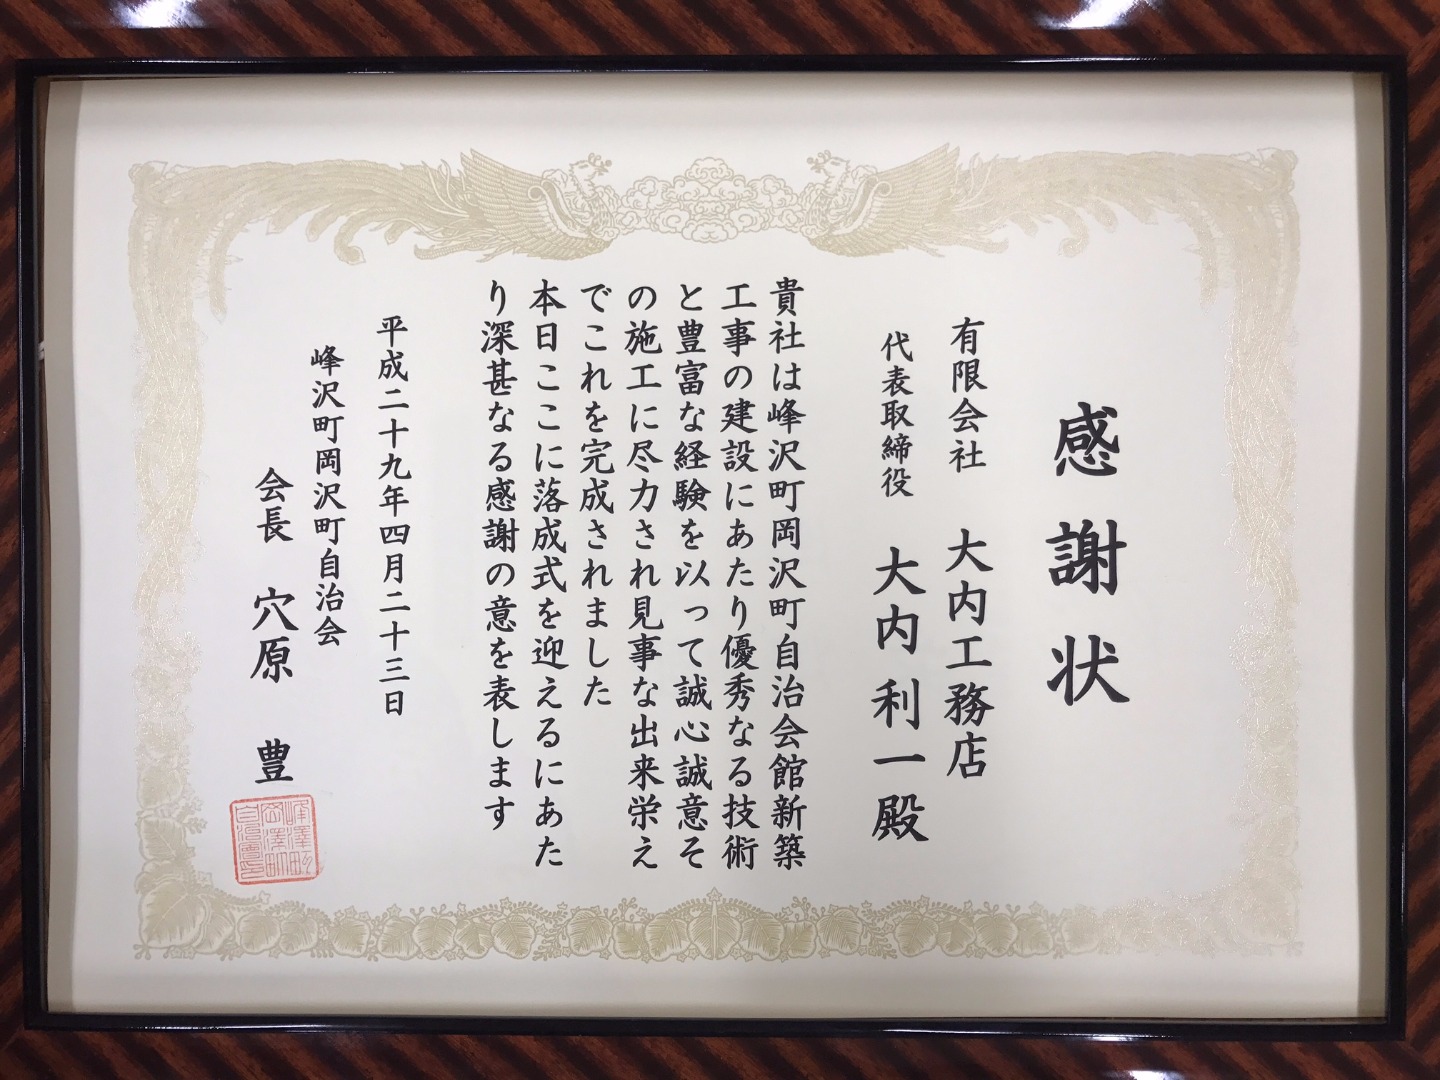 感謝状
有限会社 大内工務店
代表取締役 大内利一殿
貴社は峰沢町岡沢町自治会館新築
工事の建設にあたり優秀なる技術
と豊富な経験を以って誠心誠意そ
の施工に尽力され見事な出来栄え
でこれを完成されました
本日ここに落成式を迎えるにあた
り深甚なる感謝の意を表します
平成二十九年四月二十三日
峰沢町岡沢町自治会
会長 穴原 豊
峰澤町
岡澤町
自治會印